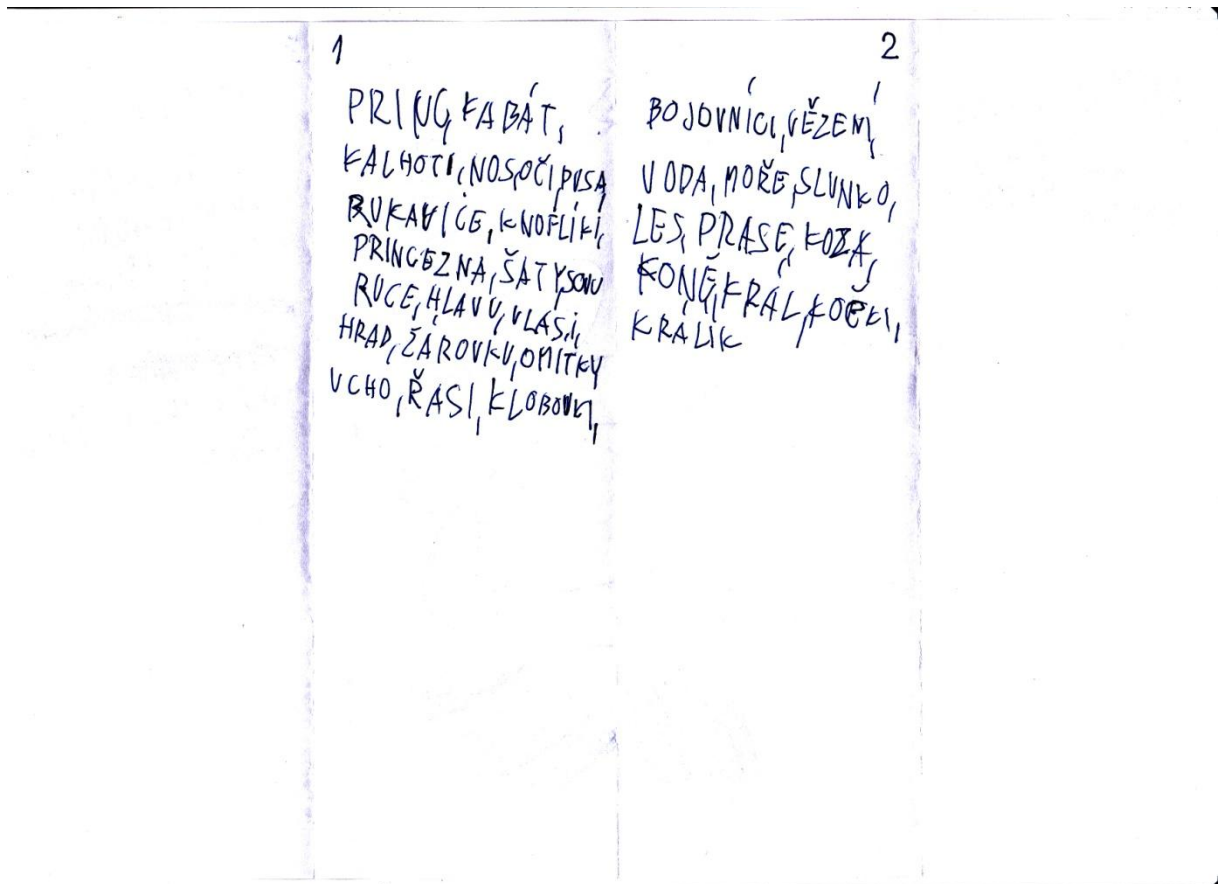 1
PRINC, KABÁT,
KALHOTI, NOS, OČI, PUSA,
RUKAVICE, KNOFLIKI,
PRINCEZNA, ŠATY,
RUCE, HLAVU, VLASI,
HRAD, ŽÁROVKU, OMITKY
UCHO, ŘASI, KLOBOUKI,
2
BOJOVNÍCI, VĚZENÍ,
VODA, MOŘE, SLUNKO,
LES, PRASE, KOZA,
KONĚ, KRÁL, KOČKI,
KRALIK